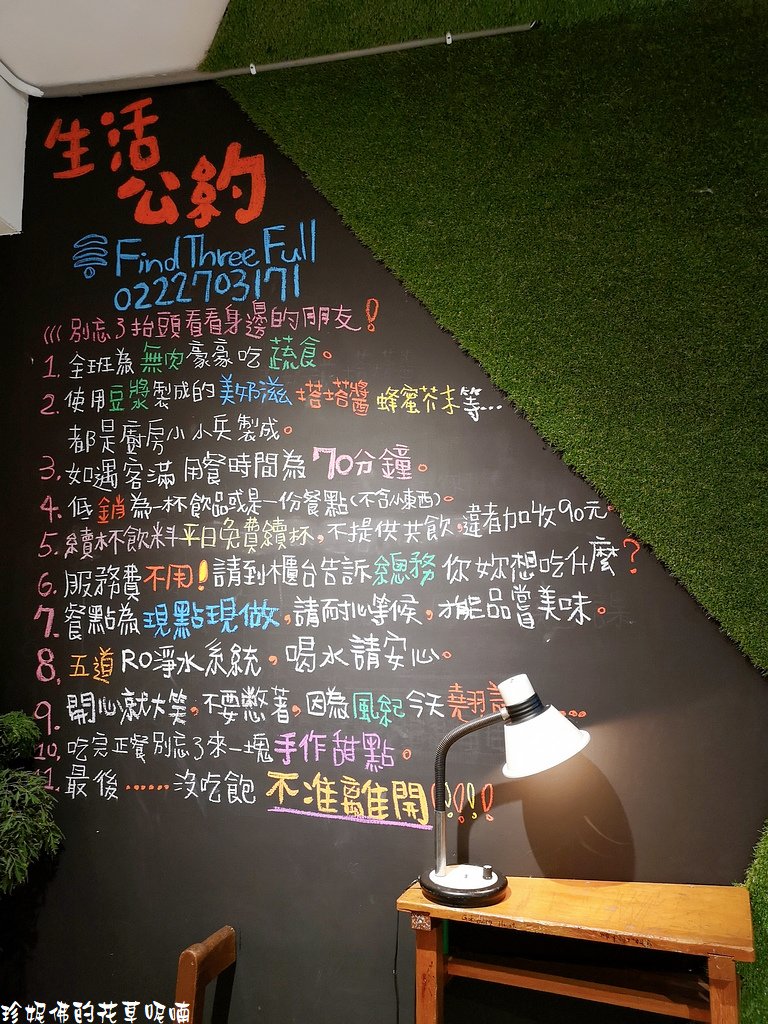 生活
公約
Find Three Full
0222703171
((( 別忘了抬頭看看身邊的朋友！
1. 全班為無肉豪豪吃蔬食。
2. 使用豆漿製成的美奶滋塔塔醬蜂蜜芥末等...
都是廚房小小兵製成。
3. 如遇客滿用餐時間為70分鐘。
4. 低銷為一杯飲品或是一份餐點(不含小東西)。
5. 續杯飲料平日免費續杯,不提供共飲,違者加收90元。
6. 服務費不用！請到櫃台告訴總務你妳想吃什麼？
7. 餐點為現點現做,請耐心等候,才能品嘗美味。
8. 五道RO淨水系統,喝水請安心。
9. 開心就大笑,不要憋著,因為風紀今天翹
10. 吃完正餐別忘了來一塊手作甜點。
11. 最後......沒吃飽不准離開!!!!
珍妮佛的花草呢喃